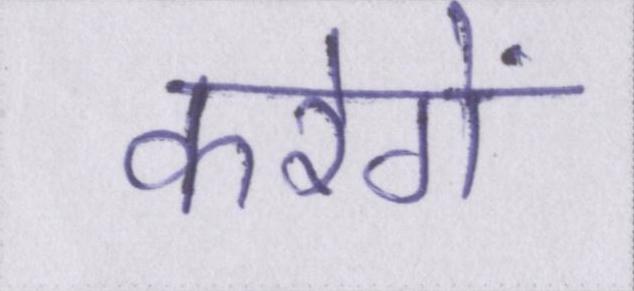 करेगें